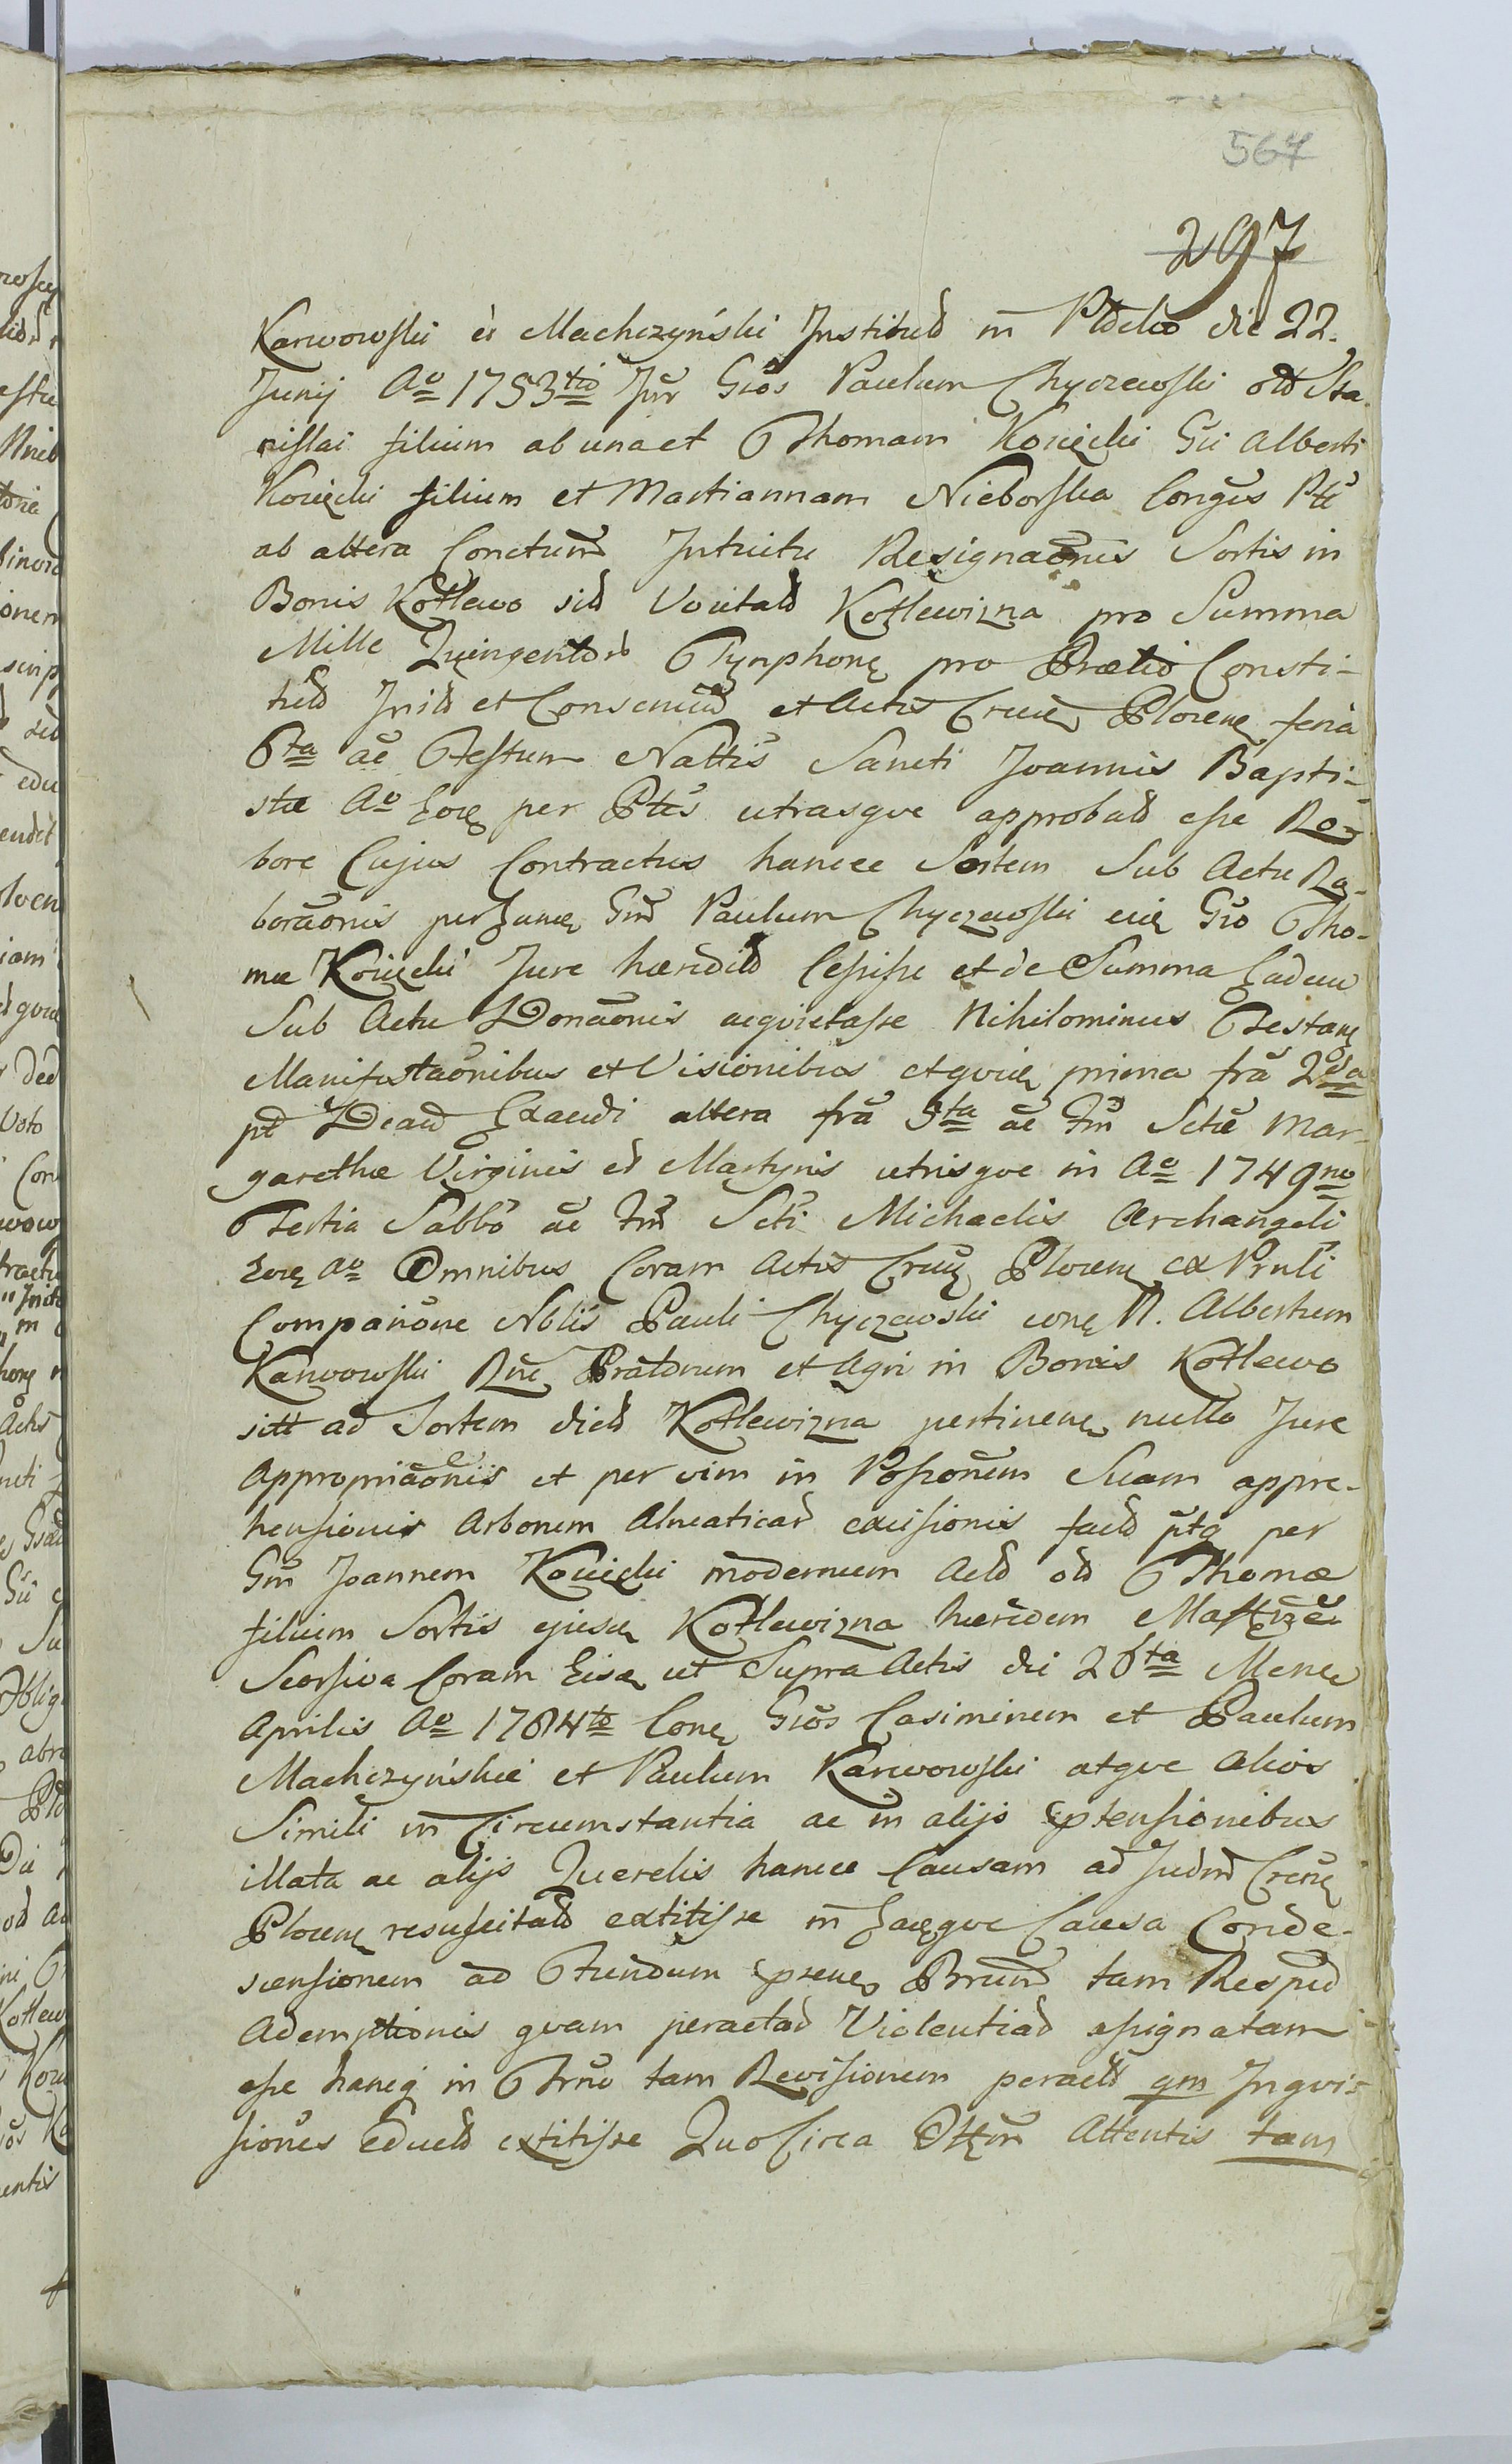 567
297
Karwowski et Machczyński Institud in Pldclio die 22.
Junij Ao 1753tio Jnr Gios Paulum Chyczewski old Sta.
nislai filium ab una et Thomam Kowięcki Gii Alberti
Kowięcki filium et Martiannam Nieborska Congūs Ptē
ab altera Conctum Intuitu Resignaōnis Sortis in
Bonis Kotlewo sid Vocitad Kotlewizna pro Summa
Mille Quingentor Tynphonę pro Prætio Consti-
tud Inid et Conscruid et Actis Crueę Plocenę feria
6ta ae Festum Nattis Sancti Joannis Bapti-
stæ Ao Eoę per Ptes utrasqve approbad esse Ro-
bore Cujus Contractus hancce Sortem Sub Actu Ro-
boraōnis per hunę Gm Paulum Chyczewski eię Gio Tho-
mæ Kowięcki Jure hæredid Cessisse et de Summa Eadem
Sub Actu Donaōnis aeqvietasse Nihilominus Testanę
Manifestaōnibus et Visionibus etqvię prima fra 2da
pt Dcam Exaudi altera fra 5ta ae Fm Sctæ Mar-
garethæ Virginis et Martyris utrisqve in Ao 1749no
Tertia Sabbo ae Fm Scti Michaelis Archangeli
Eoę Ao Omnibus Coram Actis Crueę Plocenę ex Prnli
Comparione Nblis Pauli Chyczewski conę N. Albertum
Karwowski Rne Pratorum et Agri in Bonis Kotlewo
sitt ad Sortem dictd Kotlewizna pertinenę nullo Jure
Appropriaōnis et per vim in Possionem Suam appre-
hensionis Arborum Alneaticad excisionis factd ptą per
Gm Joannem Kowięcki modernum Actd old Thomæ
filium Sortis ejusdę Kotlewizna hæredem
Scorsiva Coram Eisdę ut Supra Actis die 26ta Mense
Aprilis Ao 1764to Conę Gios Casimirum et Paulum
Machczyńskie et Paulum Karwowski atqve Alios
Simili in Circumstantia ac in alijs Eptensionibus
illata ac alijs Querelis hancce Causam ad Judm Crenę
Plocenę resuscitatd extitisse in Eaeqve Causa Conde-
scensionem ad Fundum Eprenę Bruid tam Respud
Ademptionis qvam peractad Violentiad assignatam
esse hancq in Trno tam Revisionem peractd qm Inqvi-
siones Eductd extitisse Quo Circa Attentis tam